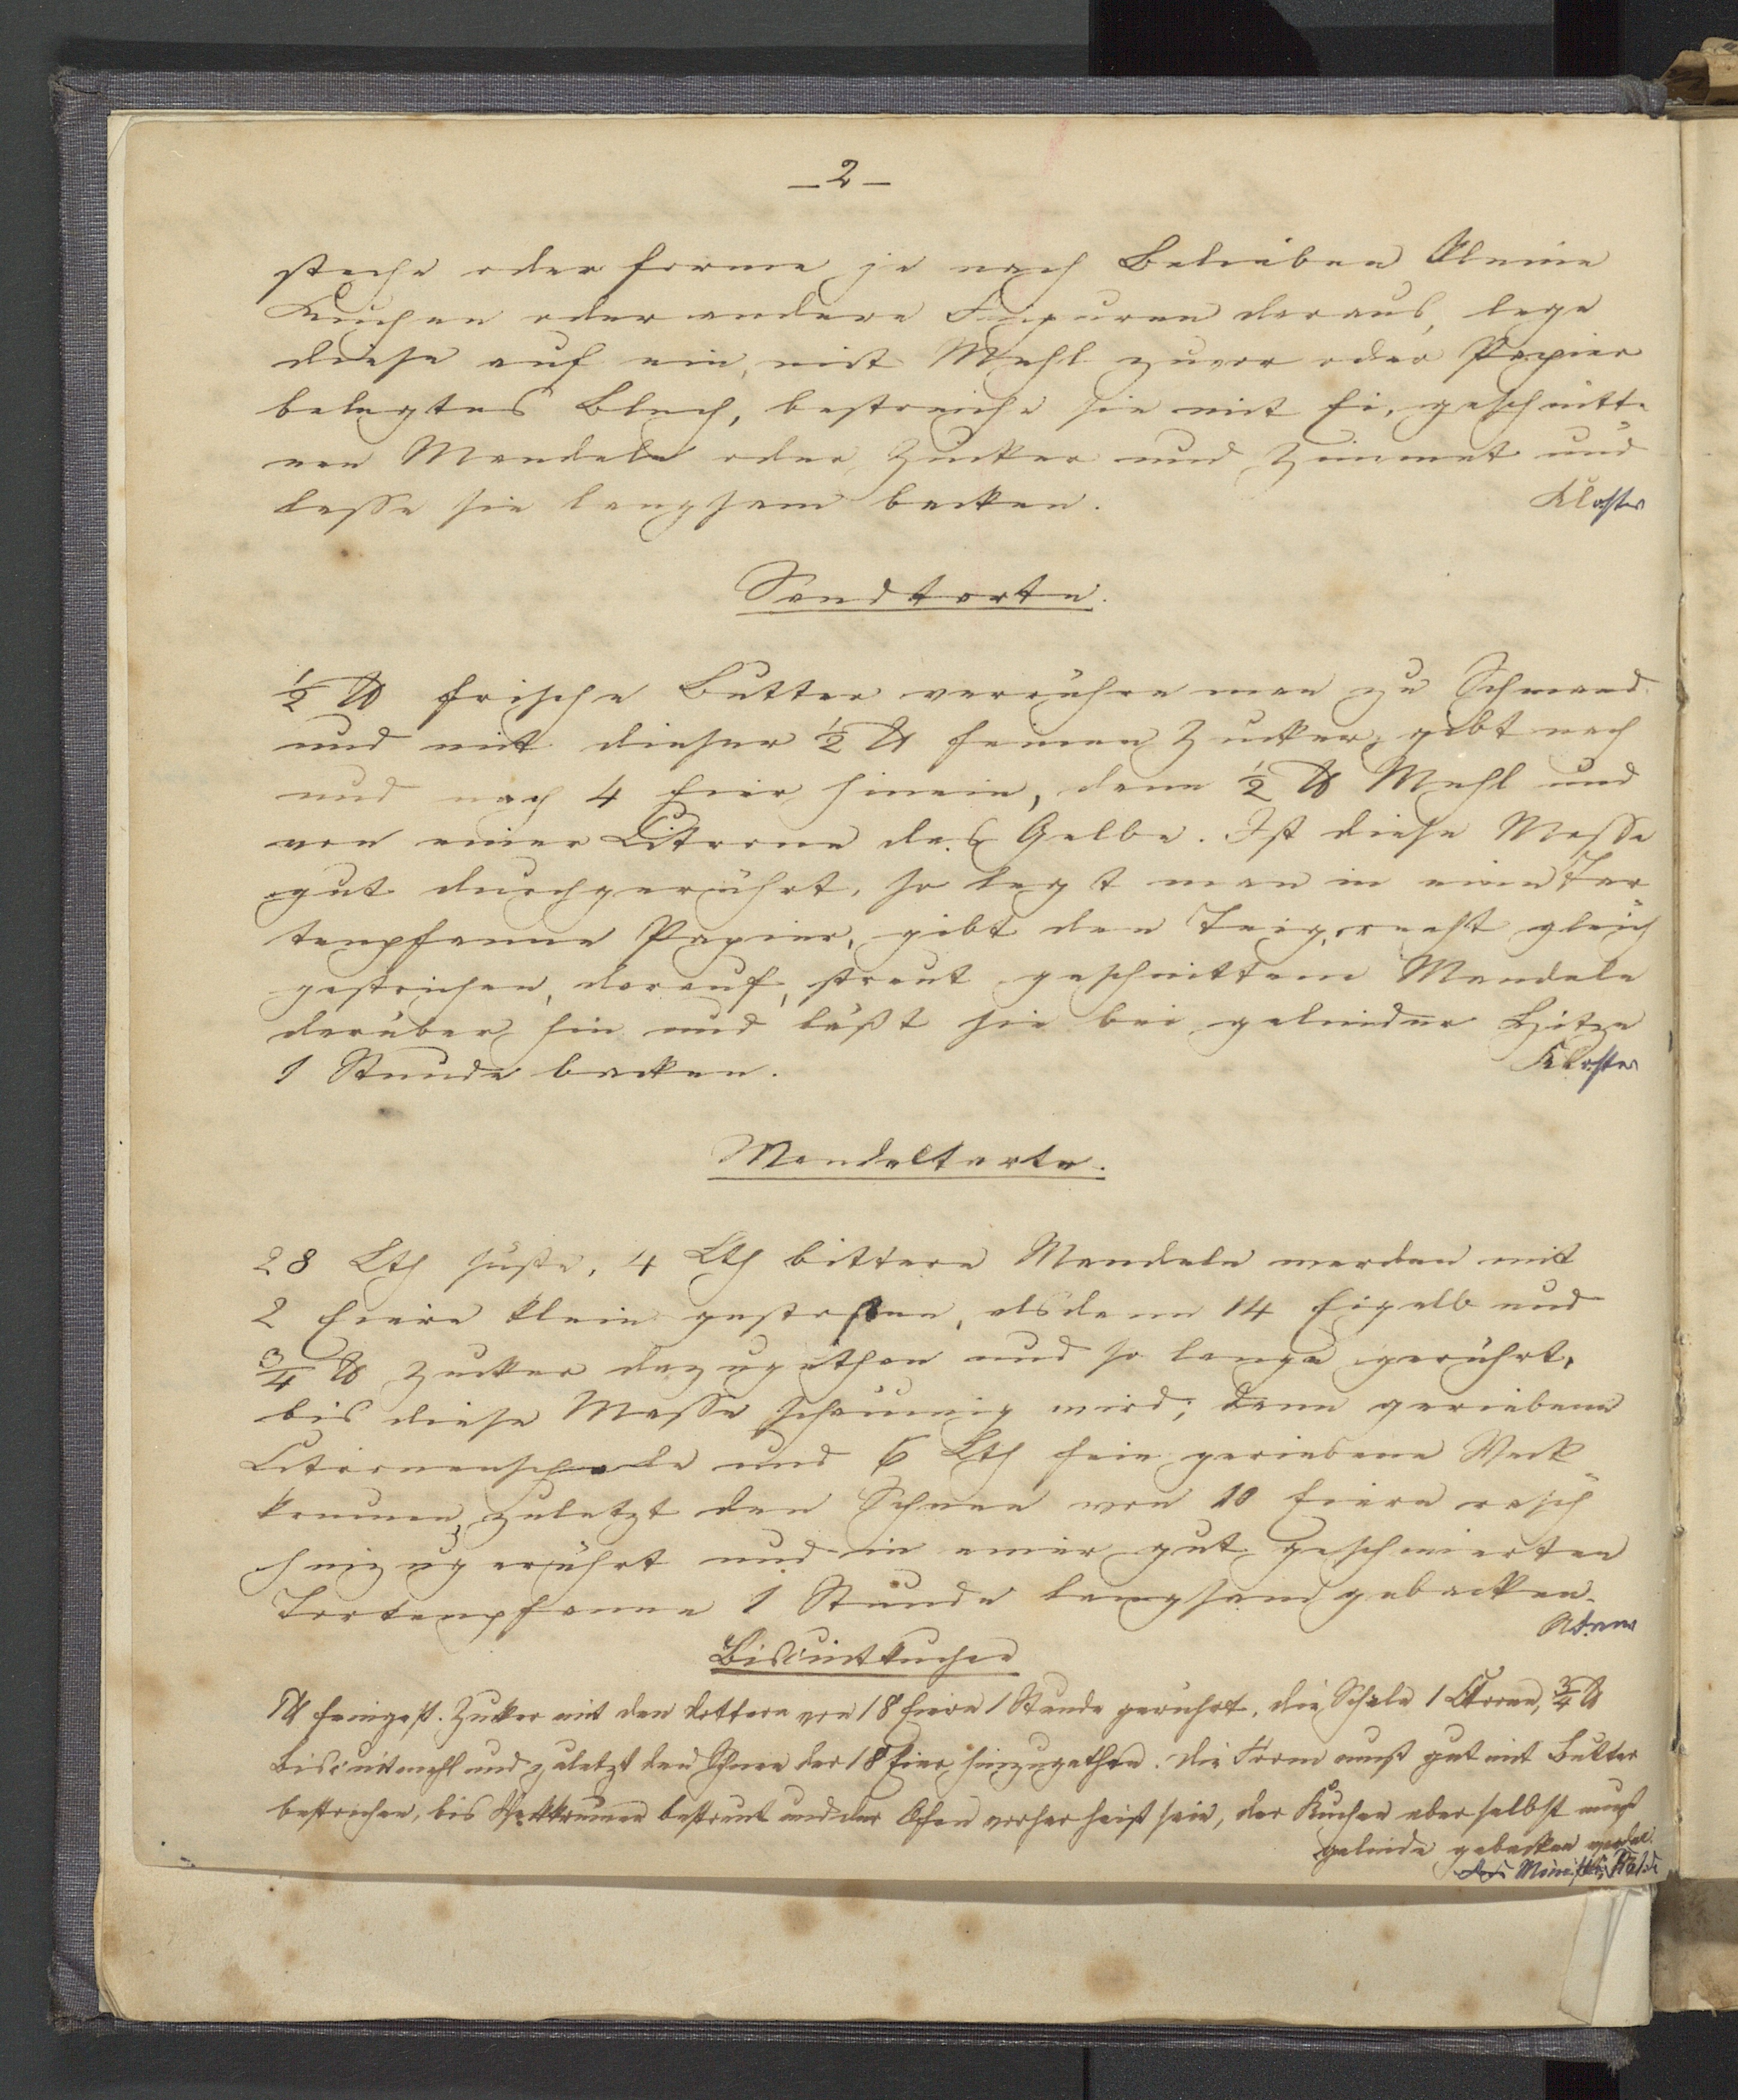 _ 2 _
steche oder forme je nach Belieben kleine
Kuchen oder andere Figuren daraus, lege
diese auf ein, mit Mehl zuvor oder Papier
belegtes Blech, bestreiche sie mit Ei, geschnitte-
nen Mandeln oder Zucker und Zimmet und
lasse sie langsam backen.
Kloster
Sandtorte.
½ ℔ frische Butter verrühre man zu Schmand
und mit dieser ½ ℔ feinen Zucker, gibt nach
und nach 4 Eier hinein, dann ½ ℔ Mehl und
von einer Citrone das Gelbe. Ist diese Masse
gut durchgerührt, so legt man in eine Tor
tenpfanne Papier, gibt den Teig, recht gleich
gestrichen, darauf, streut geschnittene Mandeln
darüber hin und läßt sie bei gelinder Hitze
1 Stunde backen.
Kloster
Mandeltorte.
28 Lth süße, 4 Lth bittere Mandeln werden mit
2 Eiern klein gestoßen, alsdann 14 Eigelb und
¾ ℔ Zucker dazugethan und so lange gerührt,
bis diese Masse schaumig wird; dann geriebene
Citronenschale und 6 Lth fein geriebene Weck
krumen, zuletzt den Schnee von 10 Eiern rasch
hinzugerührt und in einer gut geschmierten
Tortenpfanne 1 Stunde langsam gebacken.
Biscuitkuchen
1 ℔ feingest. Zucker mit den Dottern von 18 Eiern 1 Stunde gerührt, die Schale 1 Citrone, ¾ ℔
Biscuitmehl und zuletzt den Schnee der 18 Eier hinzugethan. Die Form muß gut mit Butter
bestrichen, bis Weckkrumen bestreut und der Ofen vorher heiß sein, der Kuchen aber selbst muß
gelinde gebacken werden.